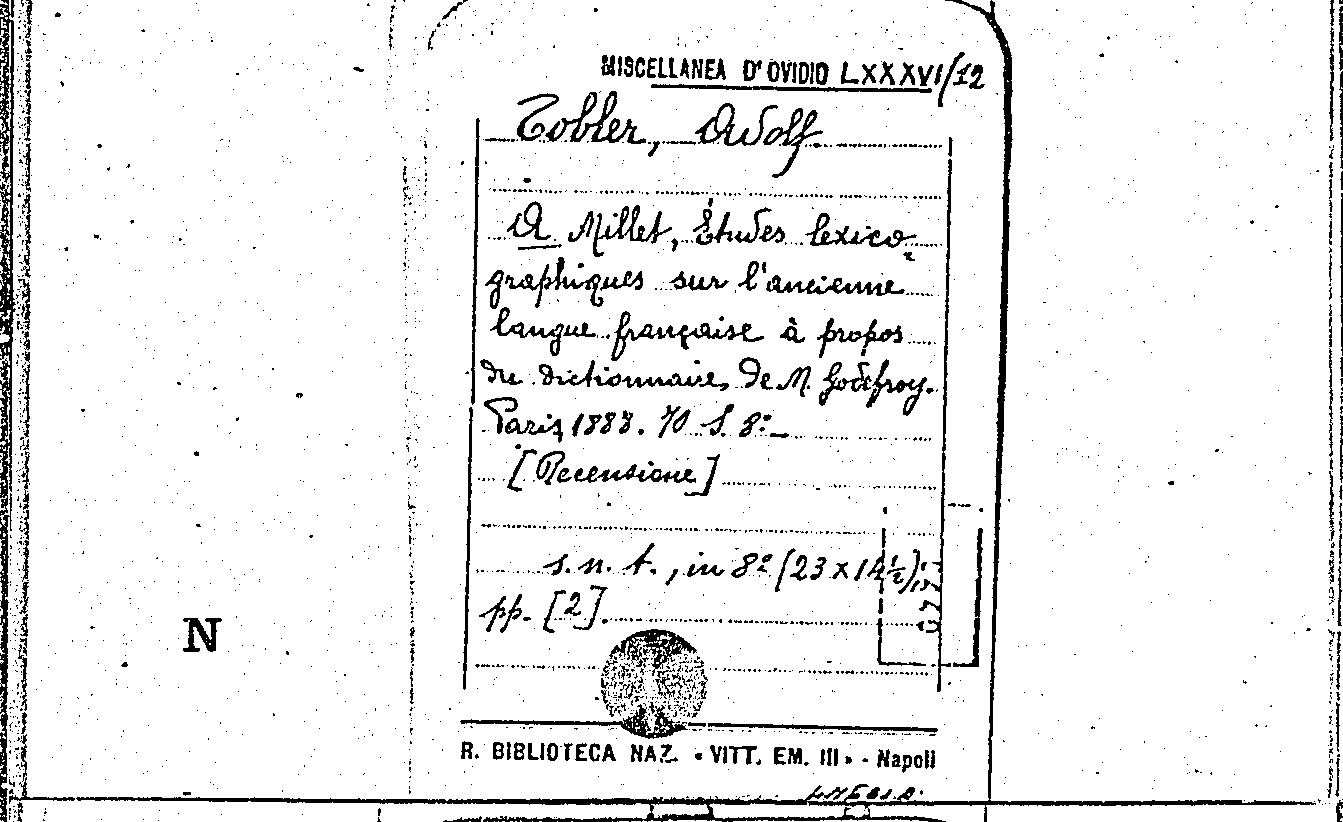 MISCELLANEA D'OVIDIO LXXXVI/12
Tobler, Adolf.
A Millet, Études lexico-
graphiques sur l'ancienne
langue française à propos
du dictionnaire de M. Godefroy.
Paris, 1888. 70 S. 8º.-
[Recensione]
s.n.t., in 8º (23 x 14½),
pp. [2].
N
R. BIBLIOTECA NAZ. « VITT. EM. III » - Napoli